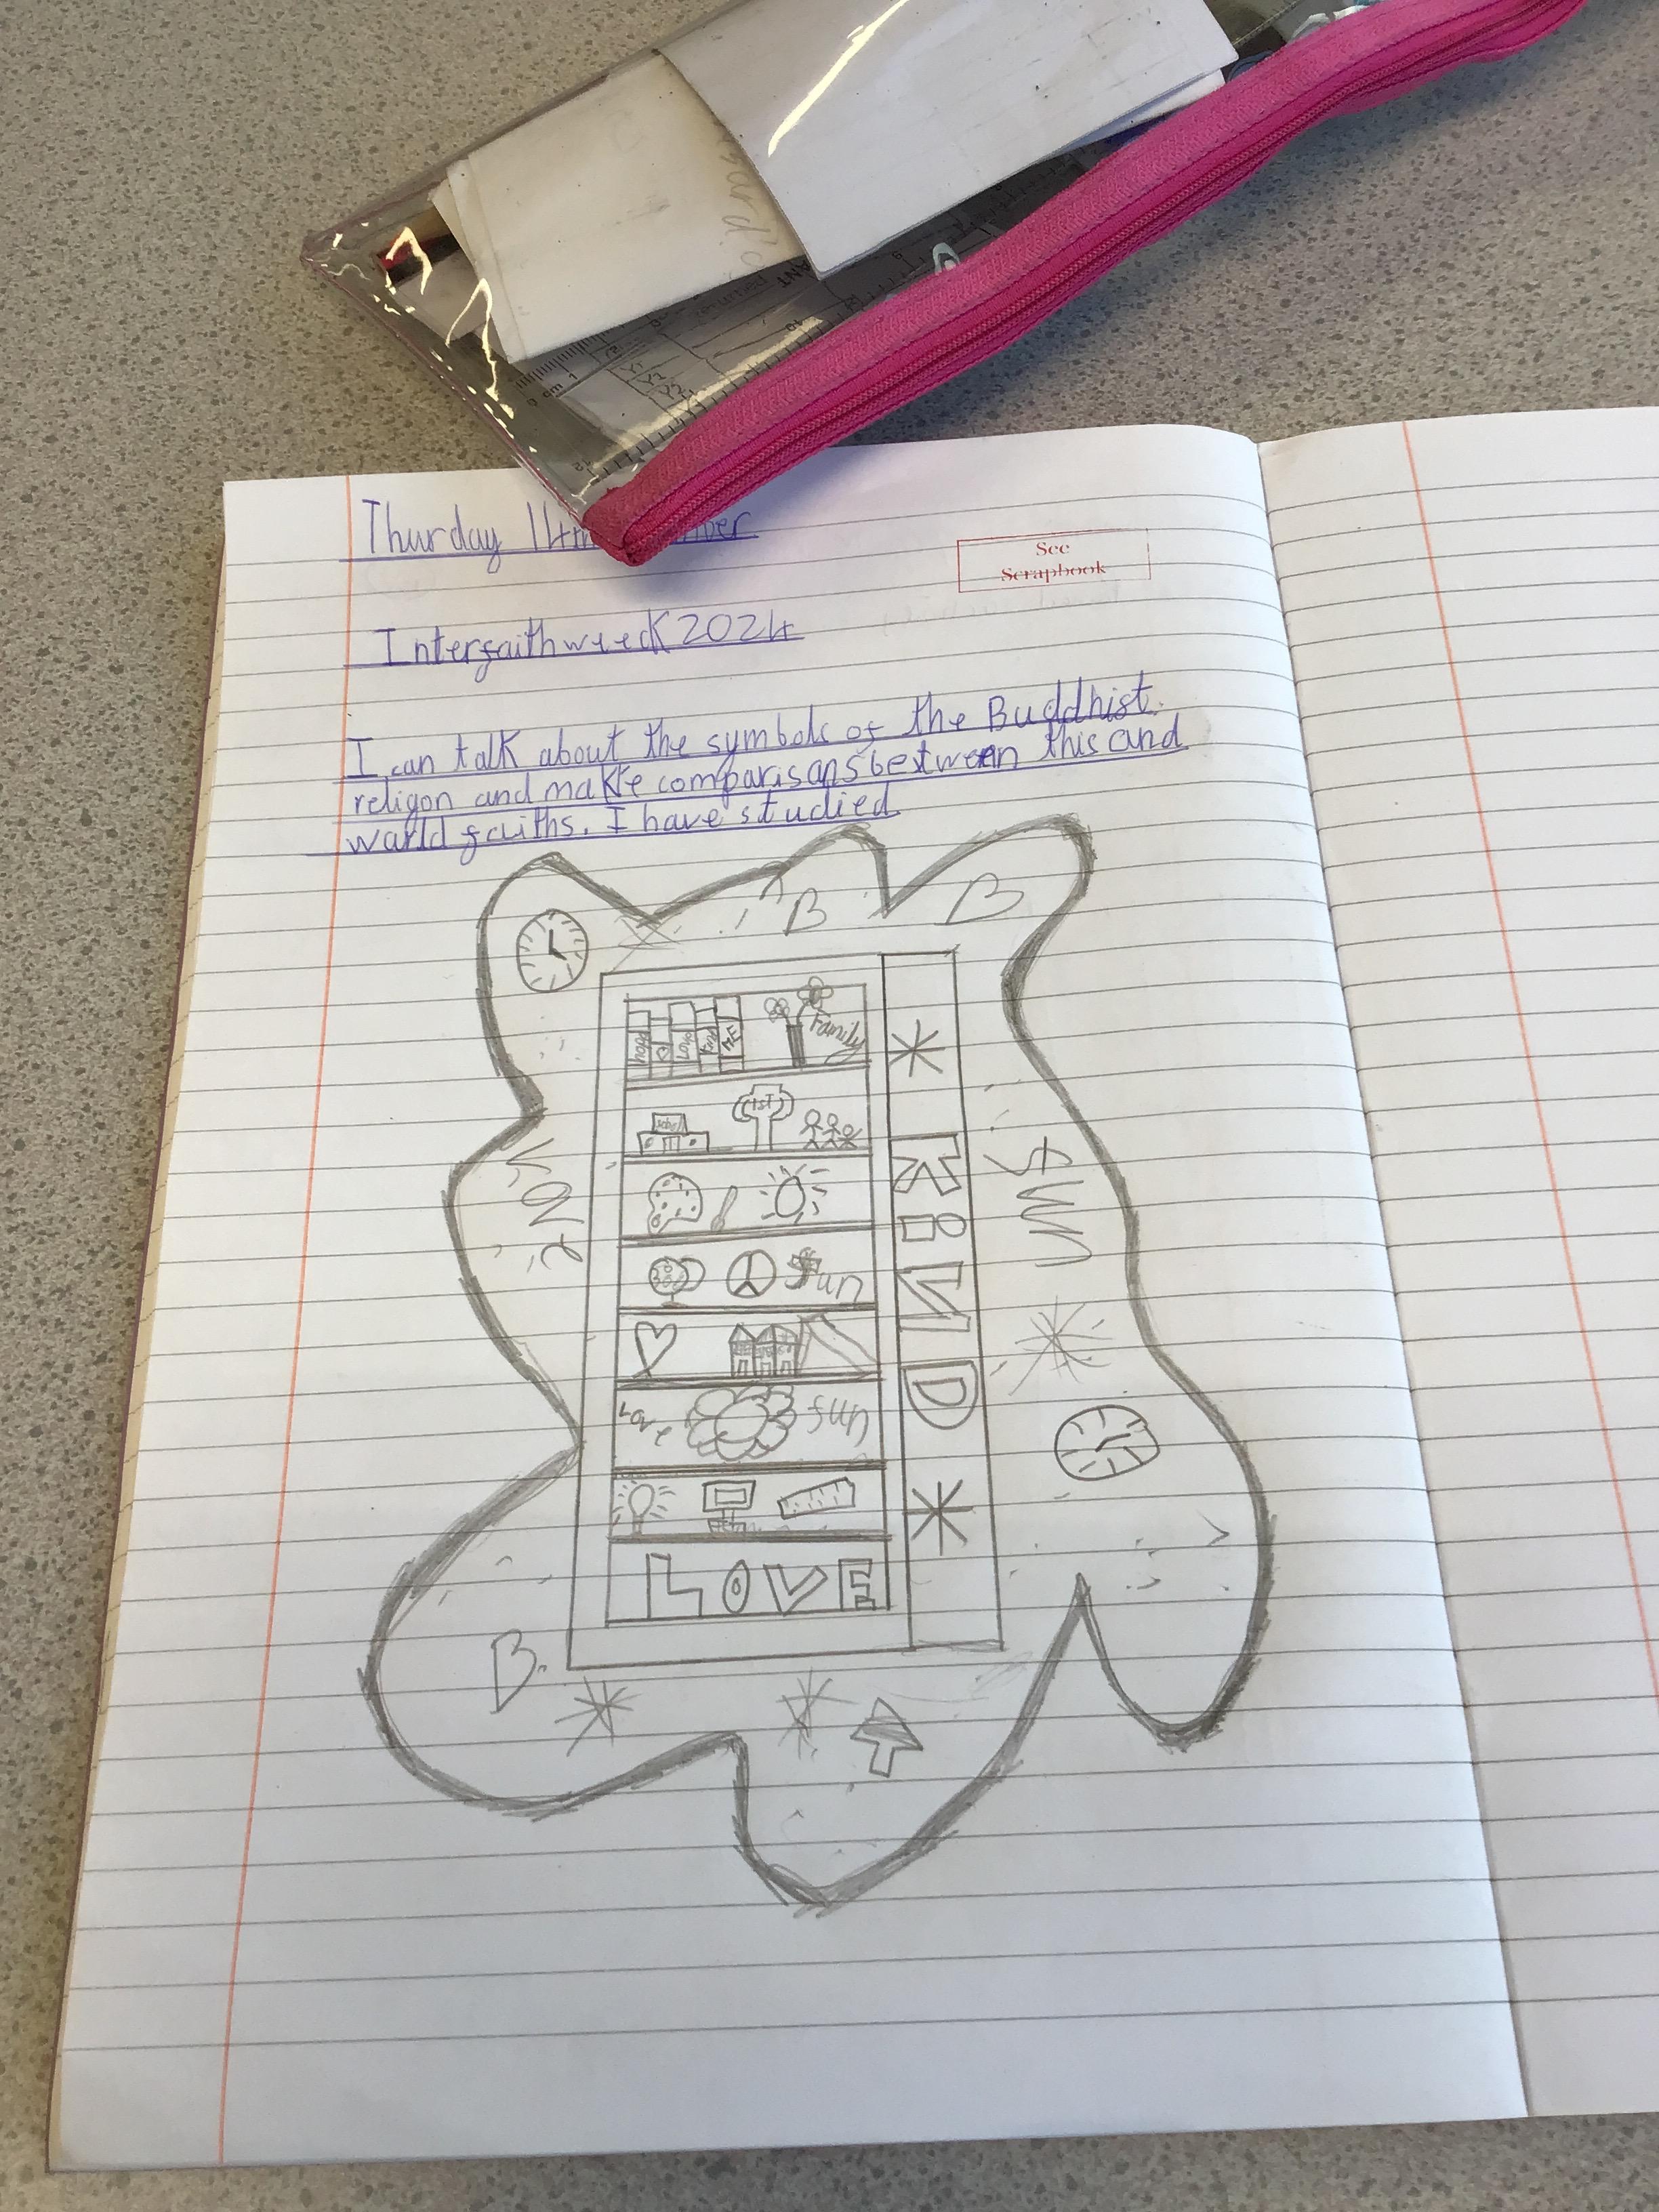 Thurday 14th
See
Scrapbook
Interfaith week 2024
I can talk about the symbols of the Buddhist
religon and make comparisans bestween this and
warld faiths. I have studied
B B
hope
Love
Family
1st
Love
fun
KIND
fun
Love fun
LOVE
B